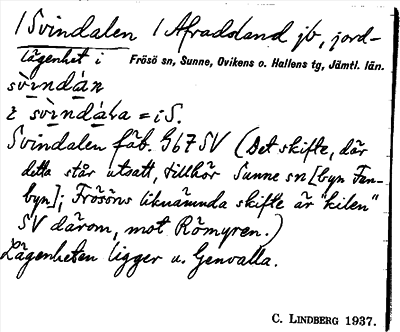 /Svindalen / Afradsland jb, jord-
lägenhet i Frösö sn, Sunne, Ovikens o. Hallens tg, Jämtl. län.
svìndán
i svìndála = i S.
Svindalen fäb. G67 SV (Det skifte, där
detta står utsatt, tillhör Sunne sn [byn Fan-
byn]; Frösöns liknämnda skifte är "kilen"
SV därom, mot Römyren.)
Lägenheten ligger u. Genvalla.
C. LINDBERG 1937.